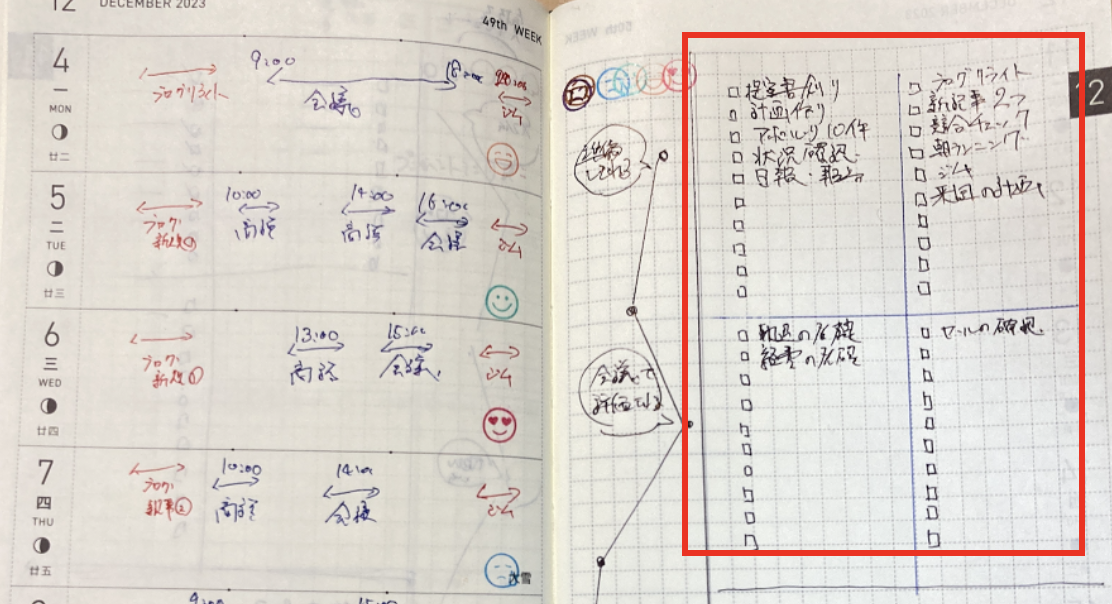 12 DECEMBER 2023
49th WEEK
4
一
MON
廿二
9:00
18:00
20:00
会議
ブログリライト
ジム
5
二
TUE
廿三
10:00
14:00
16:00
ブログ
新規①
商談
商談
会議
ジム
6
三
WED
廿四
13:00
15:00
ブログ
新規①
商談
会議
ジム
7
四
THU
廿五
10:00
14:00
ブログ
商談
会議
ジム
大雪
9:00
15:00
準備
会議で
評価
□提案書創り
□計画作り
□アポトリ10件
□状況確認
□日報・報告
□ブログリライト
□新記事2つ
□競合チェック
□朝ランニング
□ジム
□来週の計画
□の確認
□経費の確認
□セールの確認
12